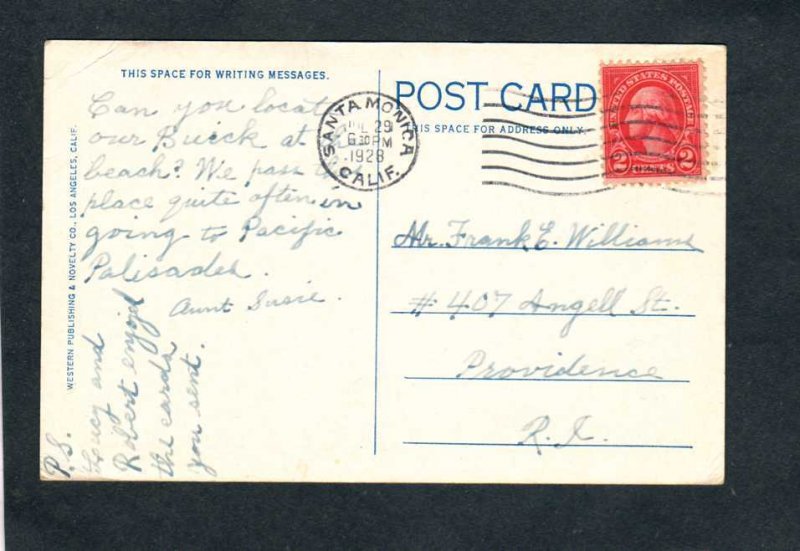 THIS SPACE FOR WRITING MESSAGES.
Can you locate
our Buick at
beach? We pass
place quite often in
going to Pacific
Palisades.
Aunt Susie.
P.S.
Lucy and
Robert enjoyed
the cards
you sent.
WESTERN PUBLISHING & NOVELTY CO., LOS ANGELES, CALIF.
POST CARD
THIS SPACE FOR ADDRESS ONLY.
SANTA MONICA
29
630PM
1928
CALIF.
UNITED STATES POSTAGE
2 CENTS 2
Mr. Frank E. Williams
#407 Angell St.
Providence
R.I.